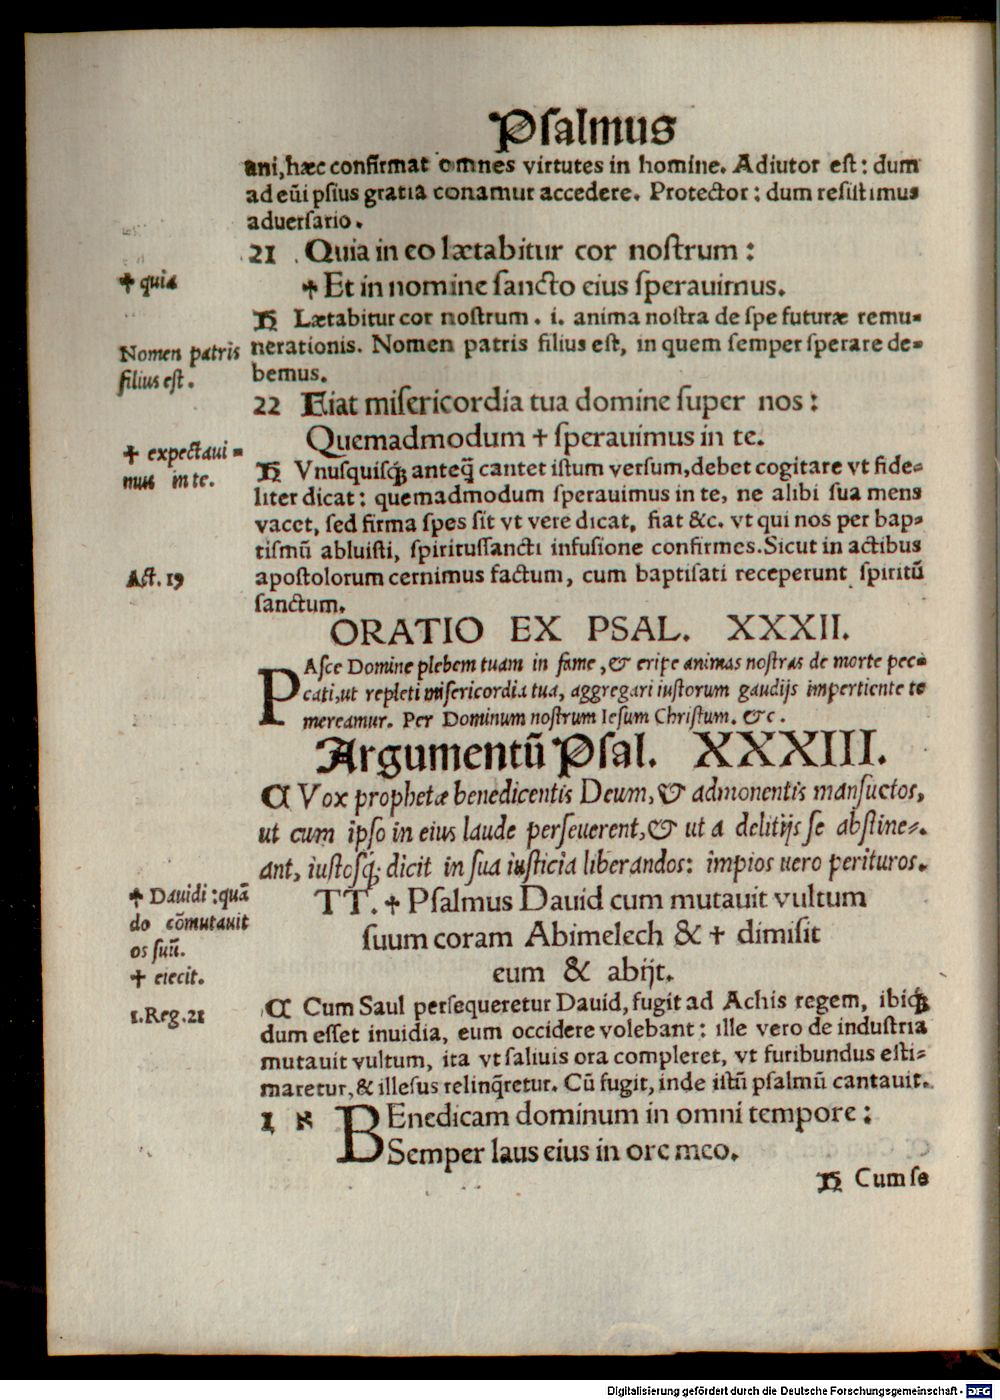 Psalmus
ani, hæc confirmat omnes virtutes in homine. Adiutor est: dum
ad eũi psius gratia conamur accedere. Protector: dum resistimus
aduersario.
21 Quia in eo lætabitur cor nostrum:
✝ quia
✝ Et in nomine sancto eius sperauimus.
Lætabitur cor nostrum. i. anima nostra de spe futuræ remu-
Nomen patris
filius est.
nerationis. Nomen patris filius est, in quem semper sperare de-
bemus.
22 Fiat misericordia tua domine super nos:
Quemadmodum ✝ sperauimus in te.
✝ expectaui-
mus in te.
Vnusquisqꝫ anteq̃ cantet istum versum, debet cogitare vt fide-
liter dicat: quemadmodum sperauimus in te, ne alibi sua mens
vacet, sed firma spes sit vt vere dicat, fiat &c. vt qui nos per bap-
tismũ abluisti, spiritussancti infusione confirmes. Sicut in actibus
Act. 19
apostolorum cernimus factum, cum baptisati receperunt spiritũ
sanctum.
ORATIO EX PSAL. XXXII.
PAsce Domine plebem tuam in fame, & eripe animas nostras de morte pec-
cati, ut repleti misericordia tua, aggregari iustorum gaudijs impertiente te
mereamur. Per Dominum nostrum Iesum Christum. &c.
Argumentũ Psal. XXXIII.
Vox prophetæ benedicentis Deum, & admonentis mansuetos,
ut cum ipso in eius laude perseuerent, & ut a delitijs se abstine-
ant, iustosqꝫ dicit in sua iusticia liberandos: impios uero perituros.
✝ Dauidi: quã
do cõmutauit
os suũ.
✝ eiecit.
TT. ✝ Psalmus Dauid cum mutauit vultum
suum coram Abimelech & ✝ dimisit
eum & abijt.
1. Reg. 21
Cum Saul persequeretur Dauid, fugit ad Achis regem, ibiqꝫ
dum esset inuidia, eum occidere volebant: ille vero de industria
mutauit vultum, ita vt saliuis ora compleret, vt furibundus esti-
maretur, & illesus relinq̃retur. Cũ fugit, inde istũ psalmũ cantauit.
1 א BEnedicam dominum in omni tempore:
Semper laus eius in ore meo.
Cum se
Digitalisierung gefördert durch die Deutsche Forschungsgemeinschaft - DFG